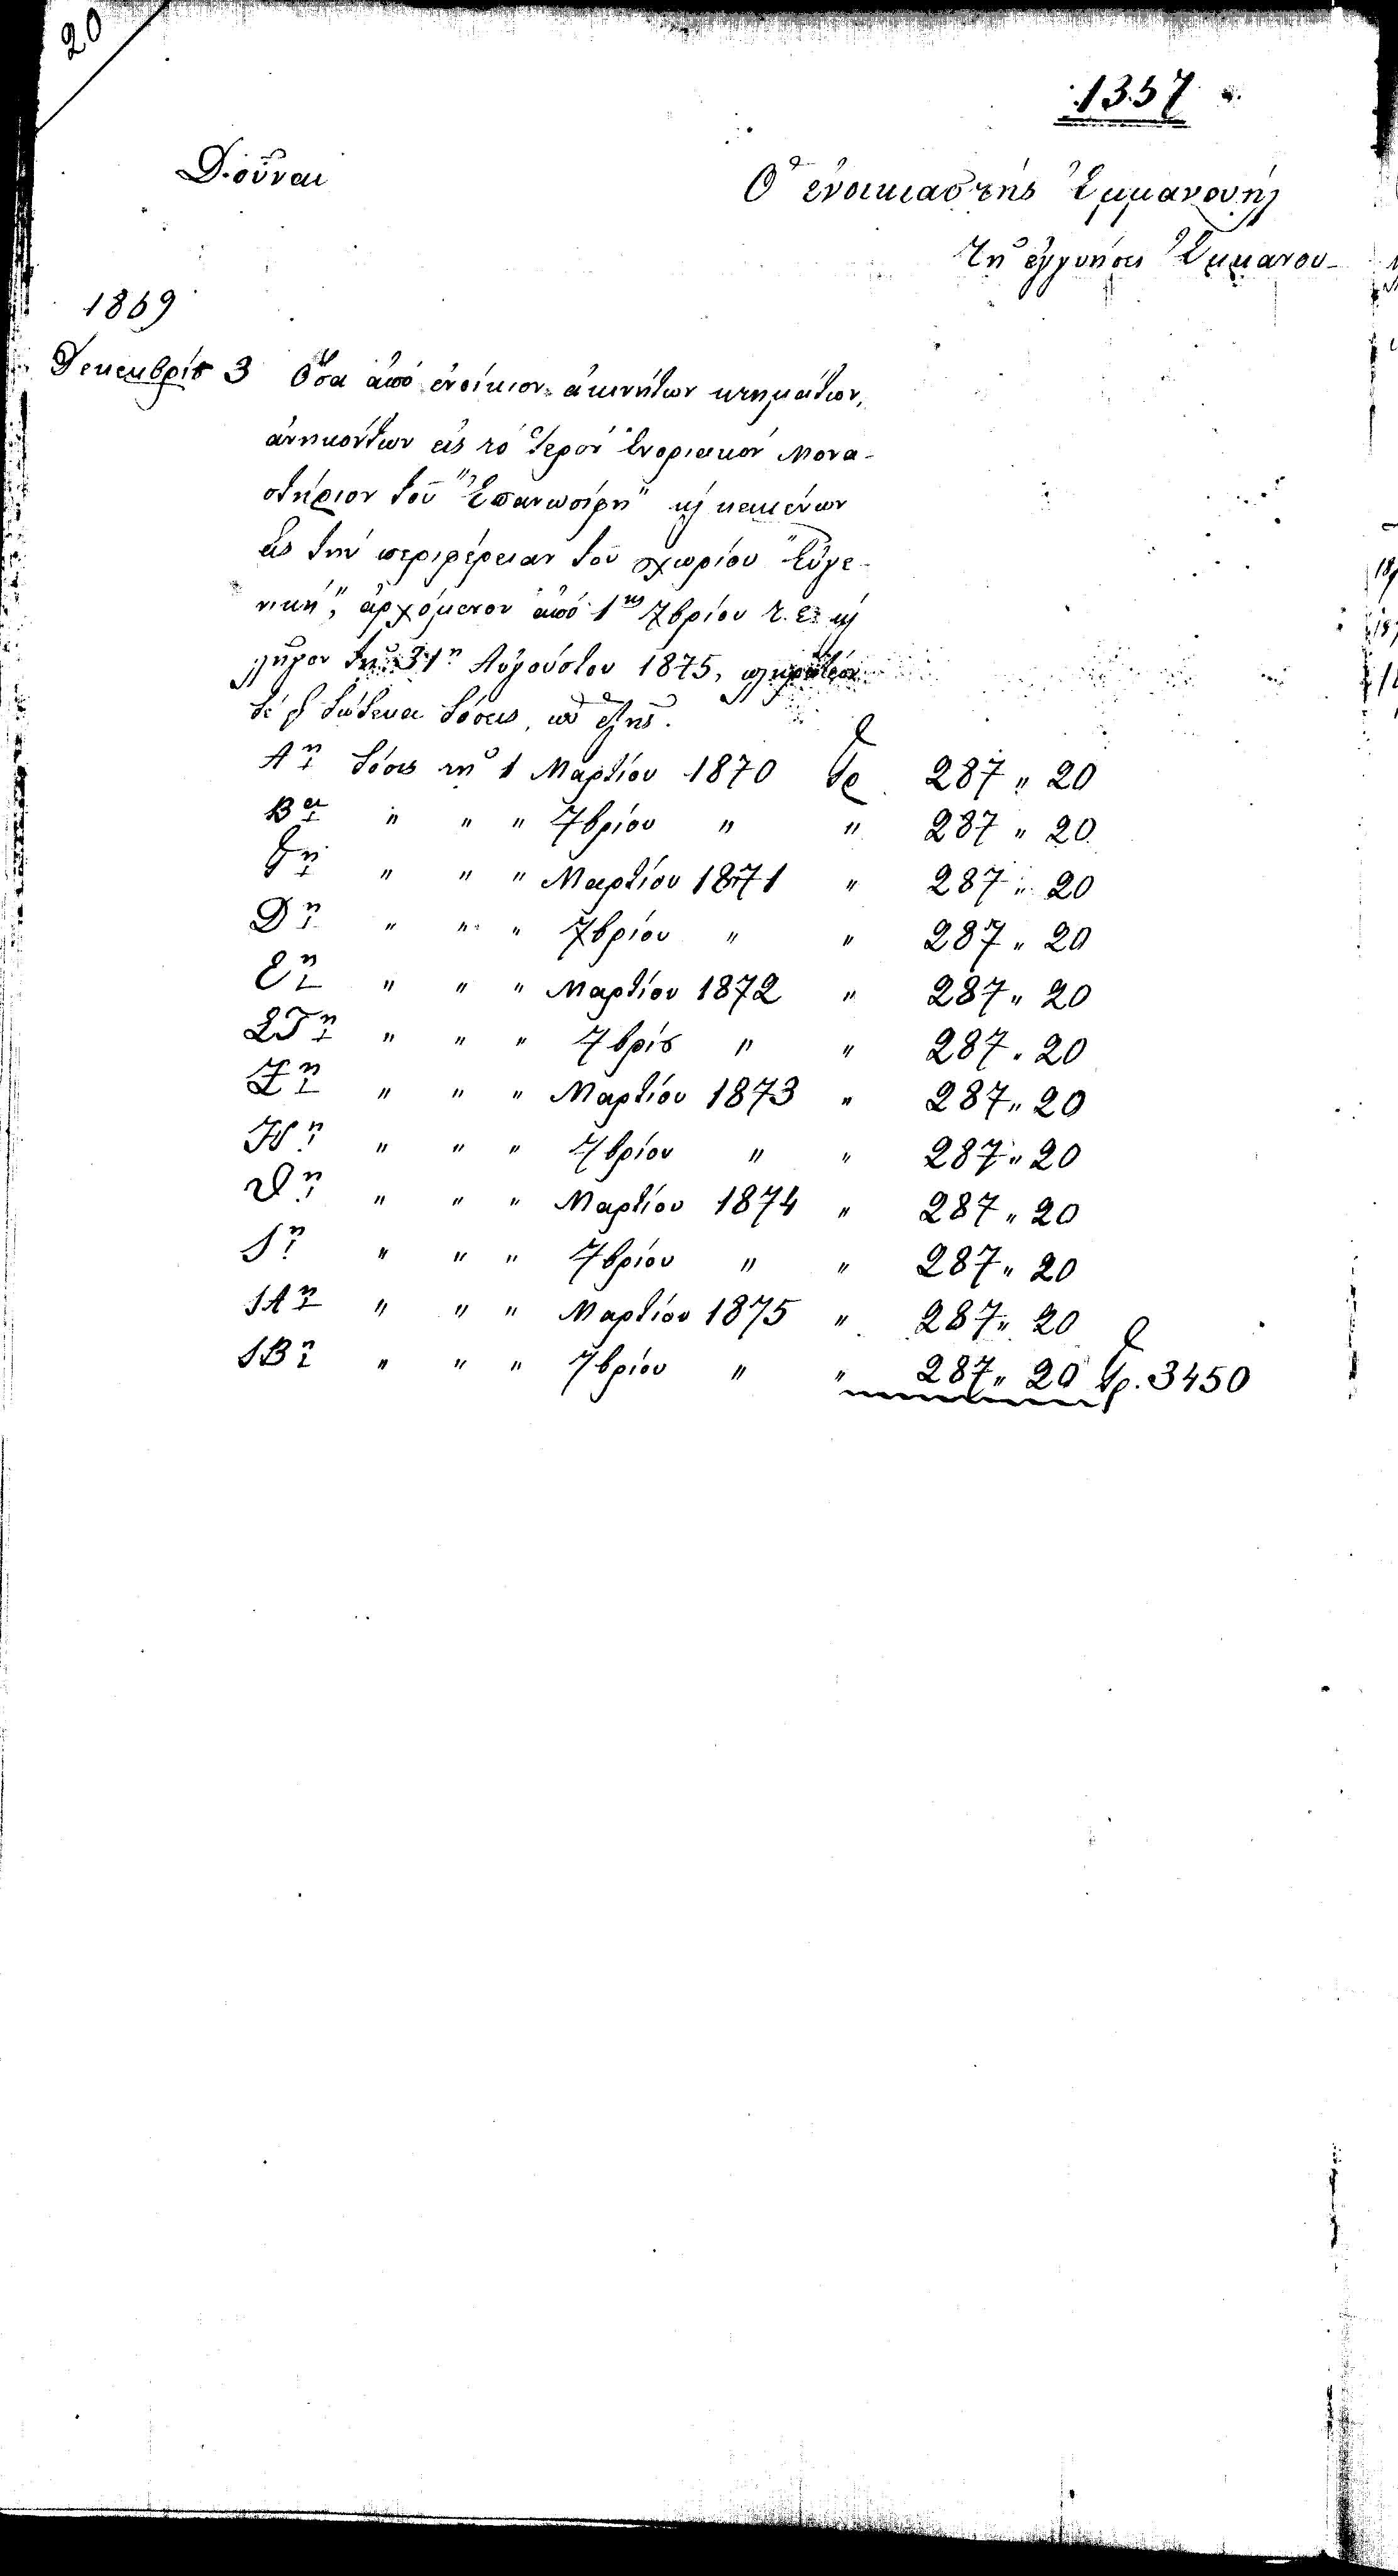 20
1357
Δοῦναι
Ὁ ἐνοικιαστής Ἐμμανουήλ
τῇ ἐγγυήσει Ἐμμανου-
1869
Δεκεμβρίου 3 Ὅσα ἀπό ἐνοίκιον ἀκινήτων κτημάτων,
ἀνηκόντων εἰς τό Ἱερόν Ἐνοριακόν Μονα-
στήριον τοῦ "Ἐπανωσήφη" κ̀ κειμένων
εἰς τήν περιφέρειαν τοῦ χωρίου "Εὐγε-
νική", ἀρχόμενον ἀπό 1ης 7βρίου ἐ. ἔ. κ̀
λῆγον τῇ 31ῃ Αὐγούστου 1875, πληρωτέον
δώδεκα δόσεις, ὡς ἑξῆς.
Αη δόσις τῇ 1 Μαρτίου 1870 Γρ 287 " 20
Βα " " " 7βρίου " " 287 " 20
Γη " " " Μαρτίου 1871 " 287 " 20
Δη " " " 7βρίου " " 287 " 20
Εη " " " Μαρτίου 1872 " 287 " 20
ΣΤη " " " 7βρίου " " 287 " 20
Ζη " " " Μαρτίου 1873 " 287 " 20
Ηη " " " 7βρίου " " 287 " 20
Θη " " " Μαρτίου 1874 " 287 " 20
Ιη " " " 7βρίου " " 287 " 20
ΙΑη " " " Μαρτίου 1875 " 287 " 20
ΙΒη " " " 7βρίου " " 287 " 20 Γρ. 3450